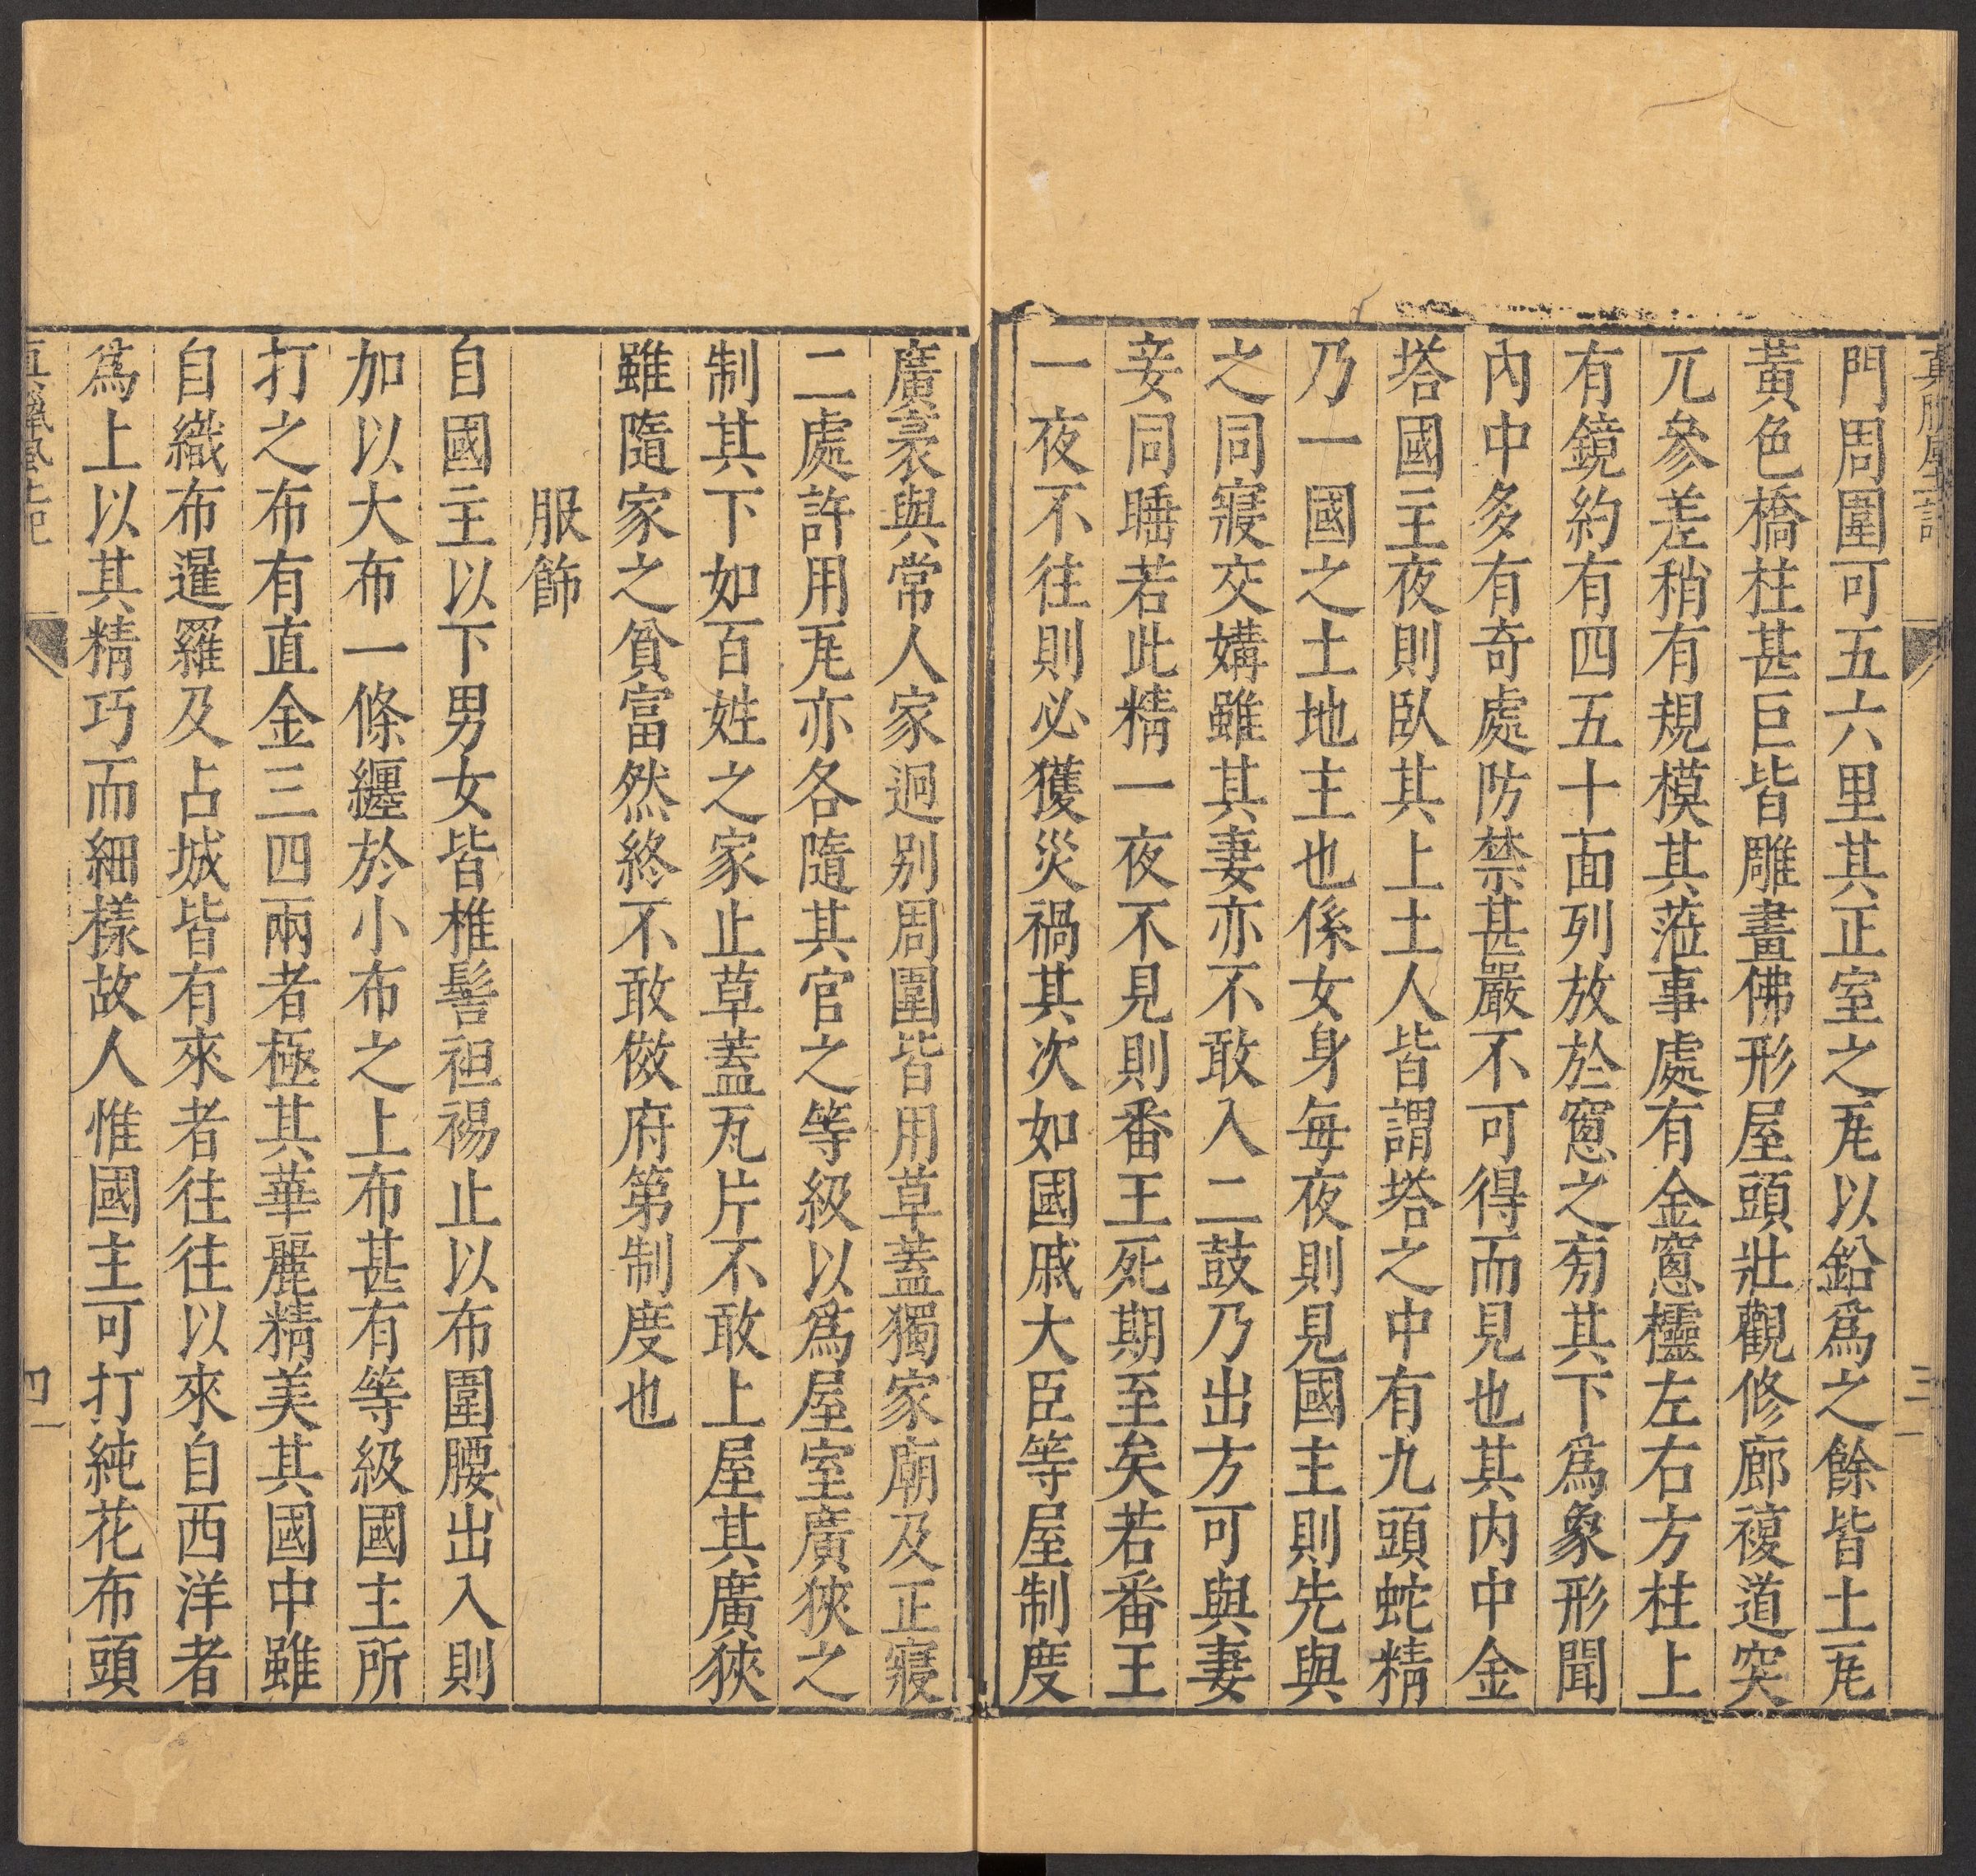 門周圍可五六里其正室之瓦以鉛爲之餘皆土瓦
黃色橋柱甚巨皆雕畫佛形屋頭壯觀修廊複道突
兀參差稍有規模其蒞事處有金窻櫺左右方柱上
有鏡約有四五十面列放於窻之旁其下爲象形聞
內中多有奇處防禁甚嚴不可得而見也其内中金
塔國主夜則臥其上土人皆謂塔之中有九頭蛇精
乃一國之土地主也係女身每夜則見國主則先與
之同寢交媾雖其妻亦不敢入二鼓乃出方可與妻
妾同睡若此精一夜不見則番王死期至矣若番王
一夜不往則必獲災禍其次如國戚大臣等屋制度
廣袤與常人家迥别周圍皆用草蓋獨家廟及正寢
二處許用瓦亦各隨其官之等級以爲屋室廣狹之
制其下如百姓之家止草蓋瓦片不敢上屋其廣狹
雖隨家之貧富然終不敢傚府第制度也
服飾
自國主以下男女皆椎髻袒裼止以布圍腰出入則
加以大布一條纏於小布之上布甚有等級國主所
打之布有直金三四兩者極其華麗精美其國中雖
自織布暹羅及占城皆有來者往往以來自西洋者
爲上以其精巧而細樣故人惟國主可打純花布頭